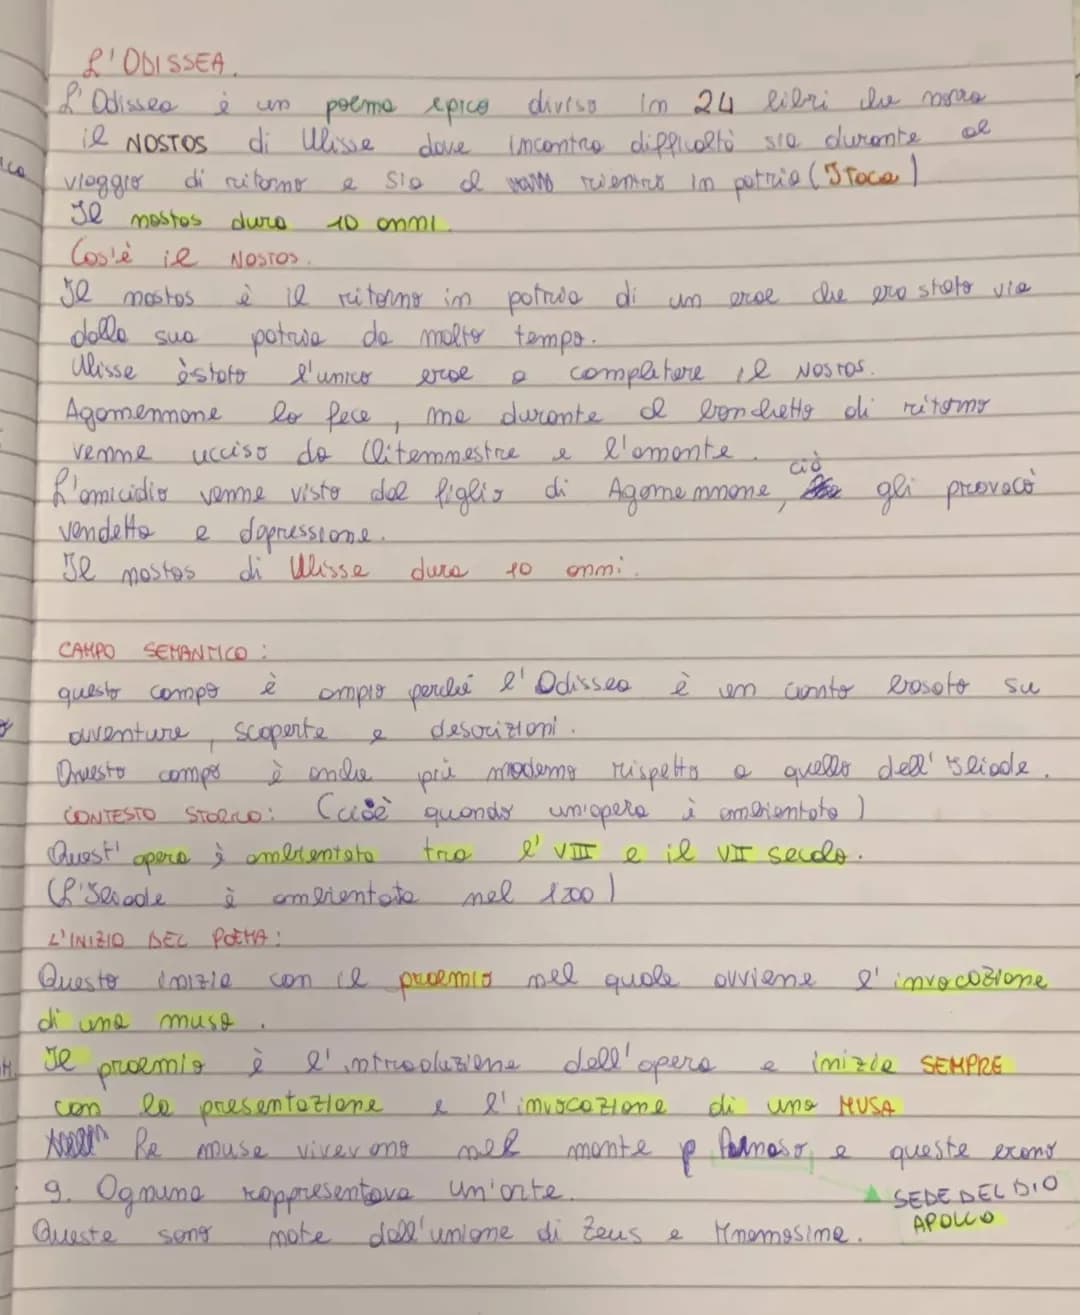 L'ODISSEA.
L'Odissea è un poema epico diviso in 24 libri che narra
il NOSTOS di Ulisse dove incontra difficoltà sia durante al
viaggio di ritorno e sia al rientro in patria (ITaca)
Il nostos dura 10 anni
Cos'è il NOSTOS.
Il nostos è il ritorno in patria di un eroe che era stato via
dalla sua patria da molto tempo.
Ulisse è stato l'unico eroe a completare il NOSTOS.
Agamennone lo fece, ma durante al banchetto di ritorno
venne ucciso da Clitemnestre e l'amante.
L'omicidio venne visto dal figlio di Agamennone, ciò gli provocò
vendetta e depressione.
Il nostos di Ulisse dura 10 anni.
CAMPO SEMANTICO:
questo campo è ampio perché l'Odissea è un canto basato su
avventure, scoperte e descrizioni.
Questo campo è anche più moderno rispetto a quello dell'Iliade.
CONTESTO STORICO: (cioè quando un'opera è ambientata)
Quest'opera è ambientata tra l'VIII e il VII secolo.
(L'Iliade è ambientata nel 1200)
L'INIZIO DEL POEMA:
Questo inizia con il proemio nel quale avviene l'invocazione
di una musa.
Il proemio è l'introduzione dell'opera e inizia SEMPRE
con la presentazione e l'invocazione di una MUSA
Le muse vivevano nel monte p Parnaso, e queste erano
9. Ognuna rappresentava un'arte.
SEDE DEL DIO
APOLLO
Queste sono nate dall'unione di Zeus e Mnemosine.